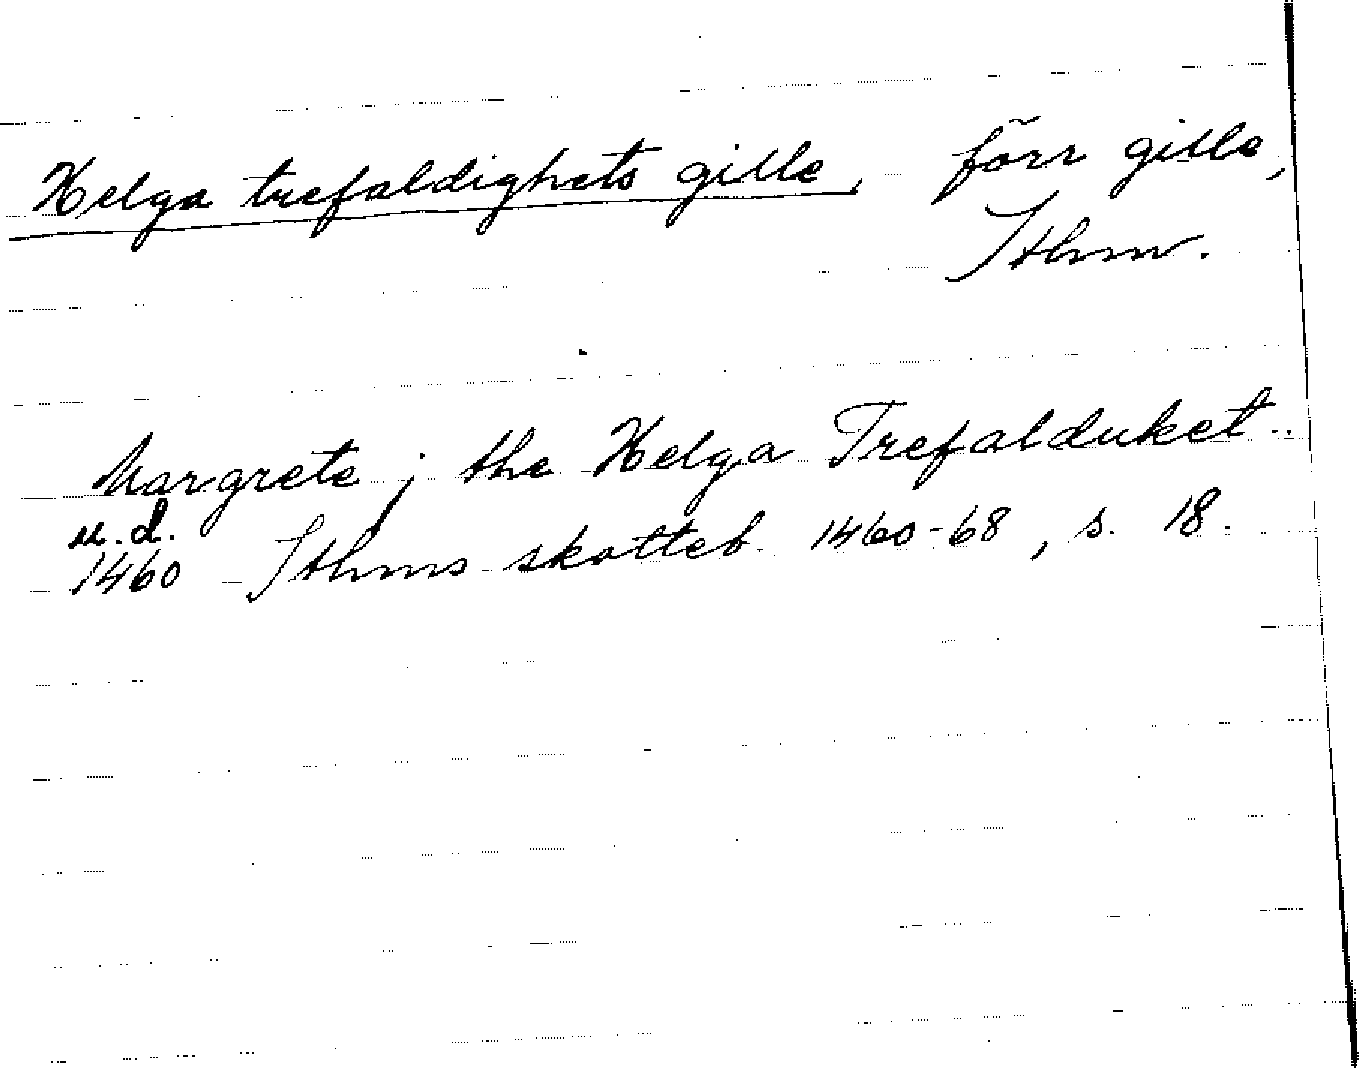 Helga trefaldighets gille, förr gille,
Sthm.
Margrete j the Helga Trefalduket
u.d.
1460 Sthms skotteb. 1460-68, s. 18.